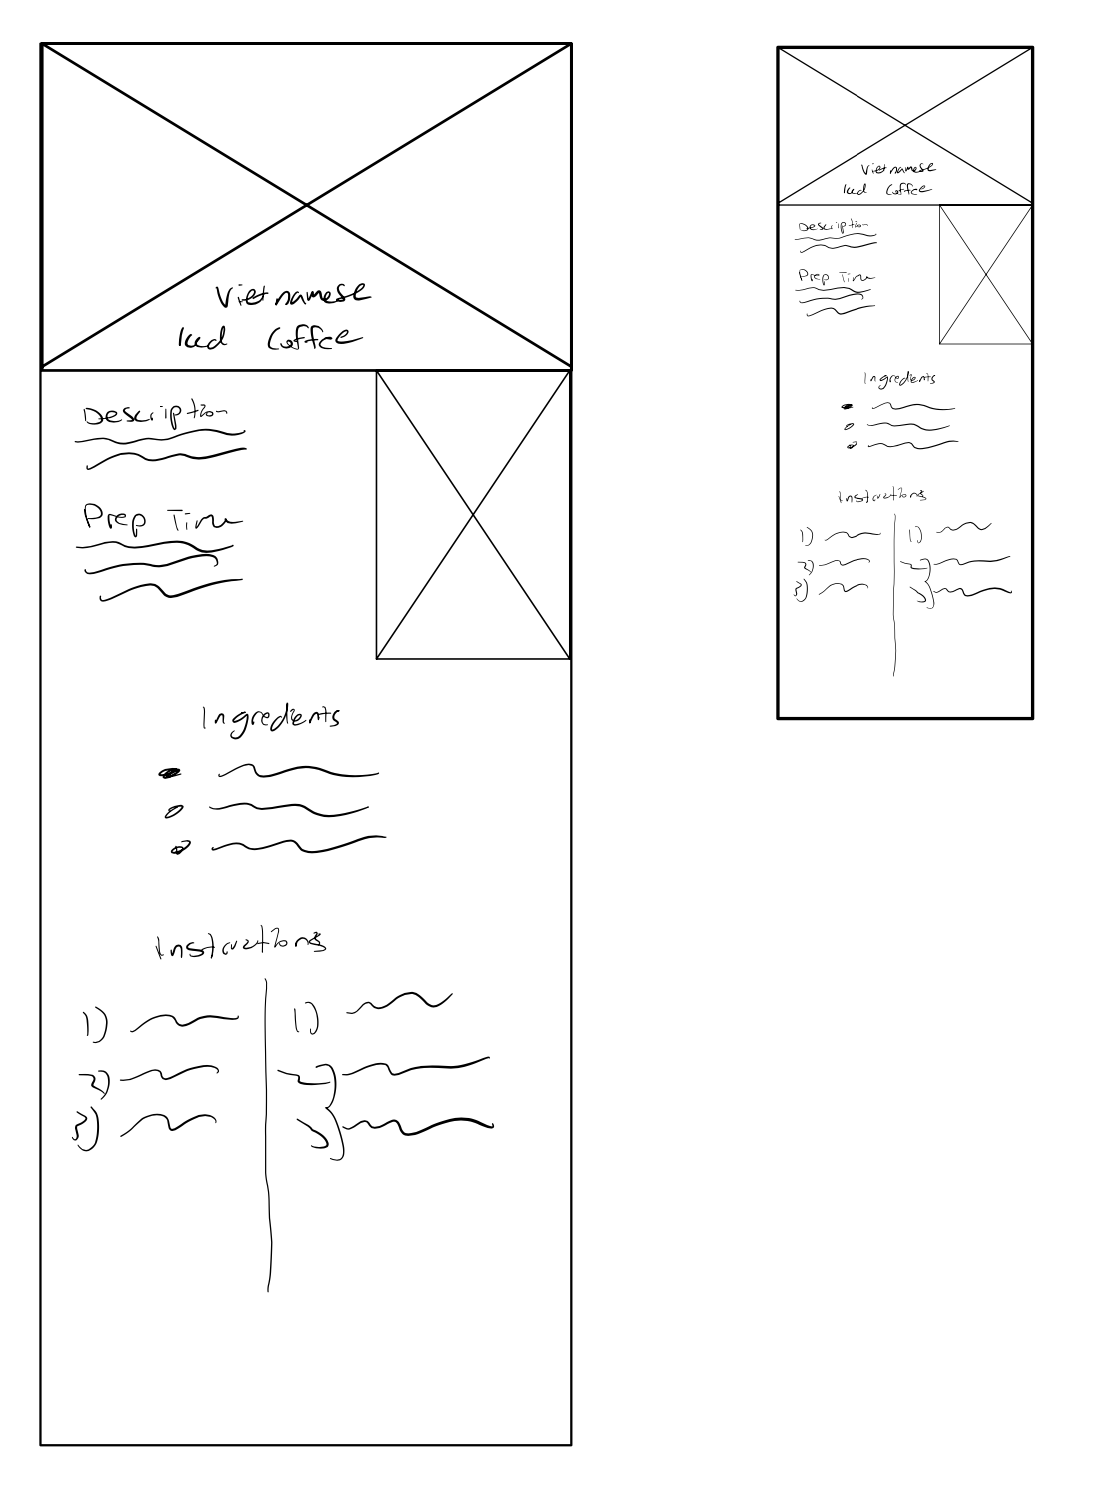 Vietnamese
Iced Coffee
Description
Prep Time
Ingredients
Instructions
1)
1)
2)
2)
3)
3)
Vietnamese
Iced Coffee
Description
Prep Time
Ingredients
Instructions
1)
1)
2)
2)
3)
3)